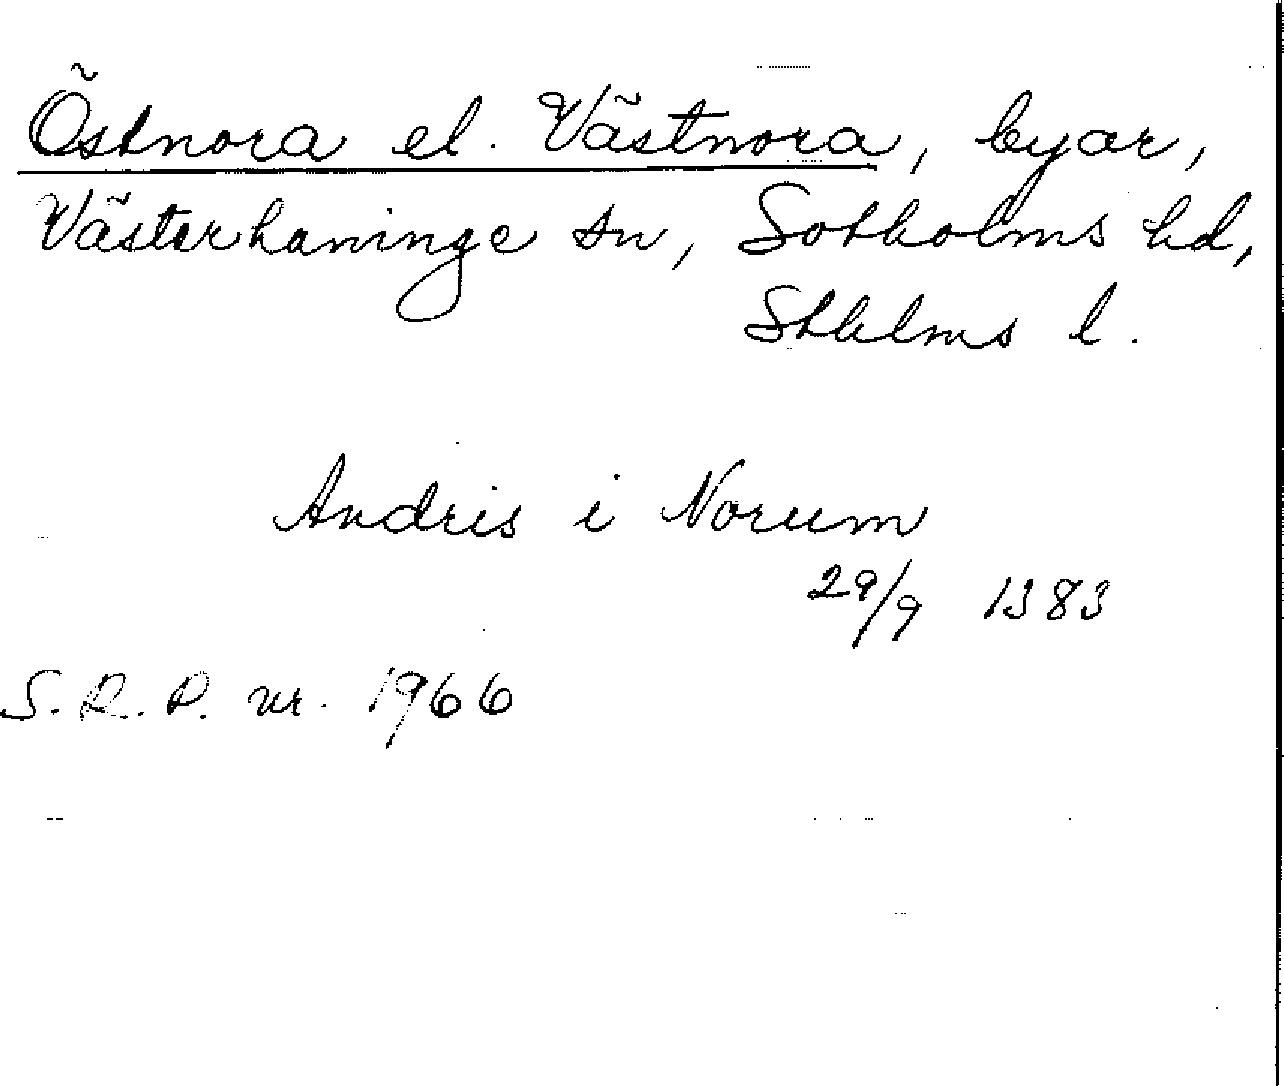 Östnora el. Västnora, byar,
Västerhaninge sn, Sotholms hd,
Sthlms l.
Andris i Norum
29/9 1383
S.R.P. nr. 1966